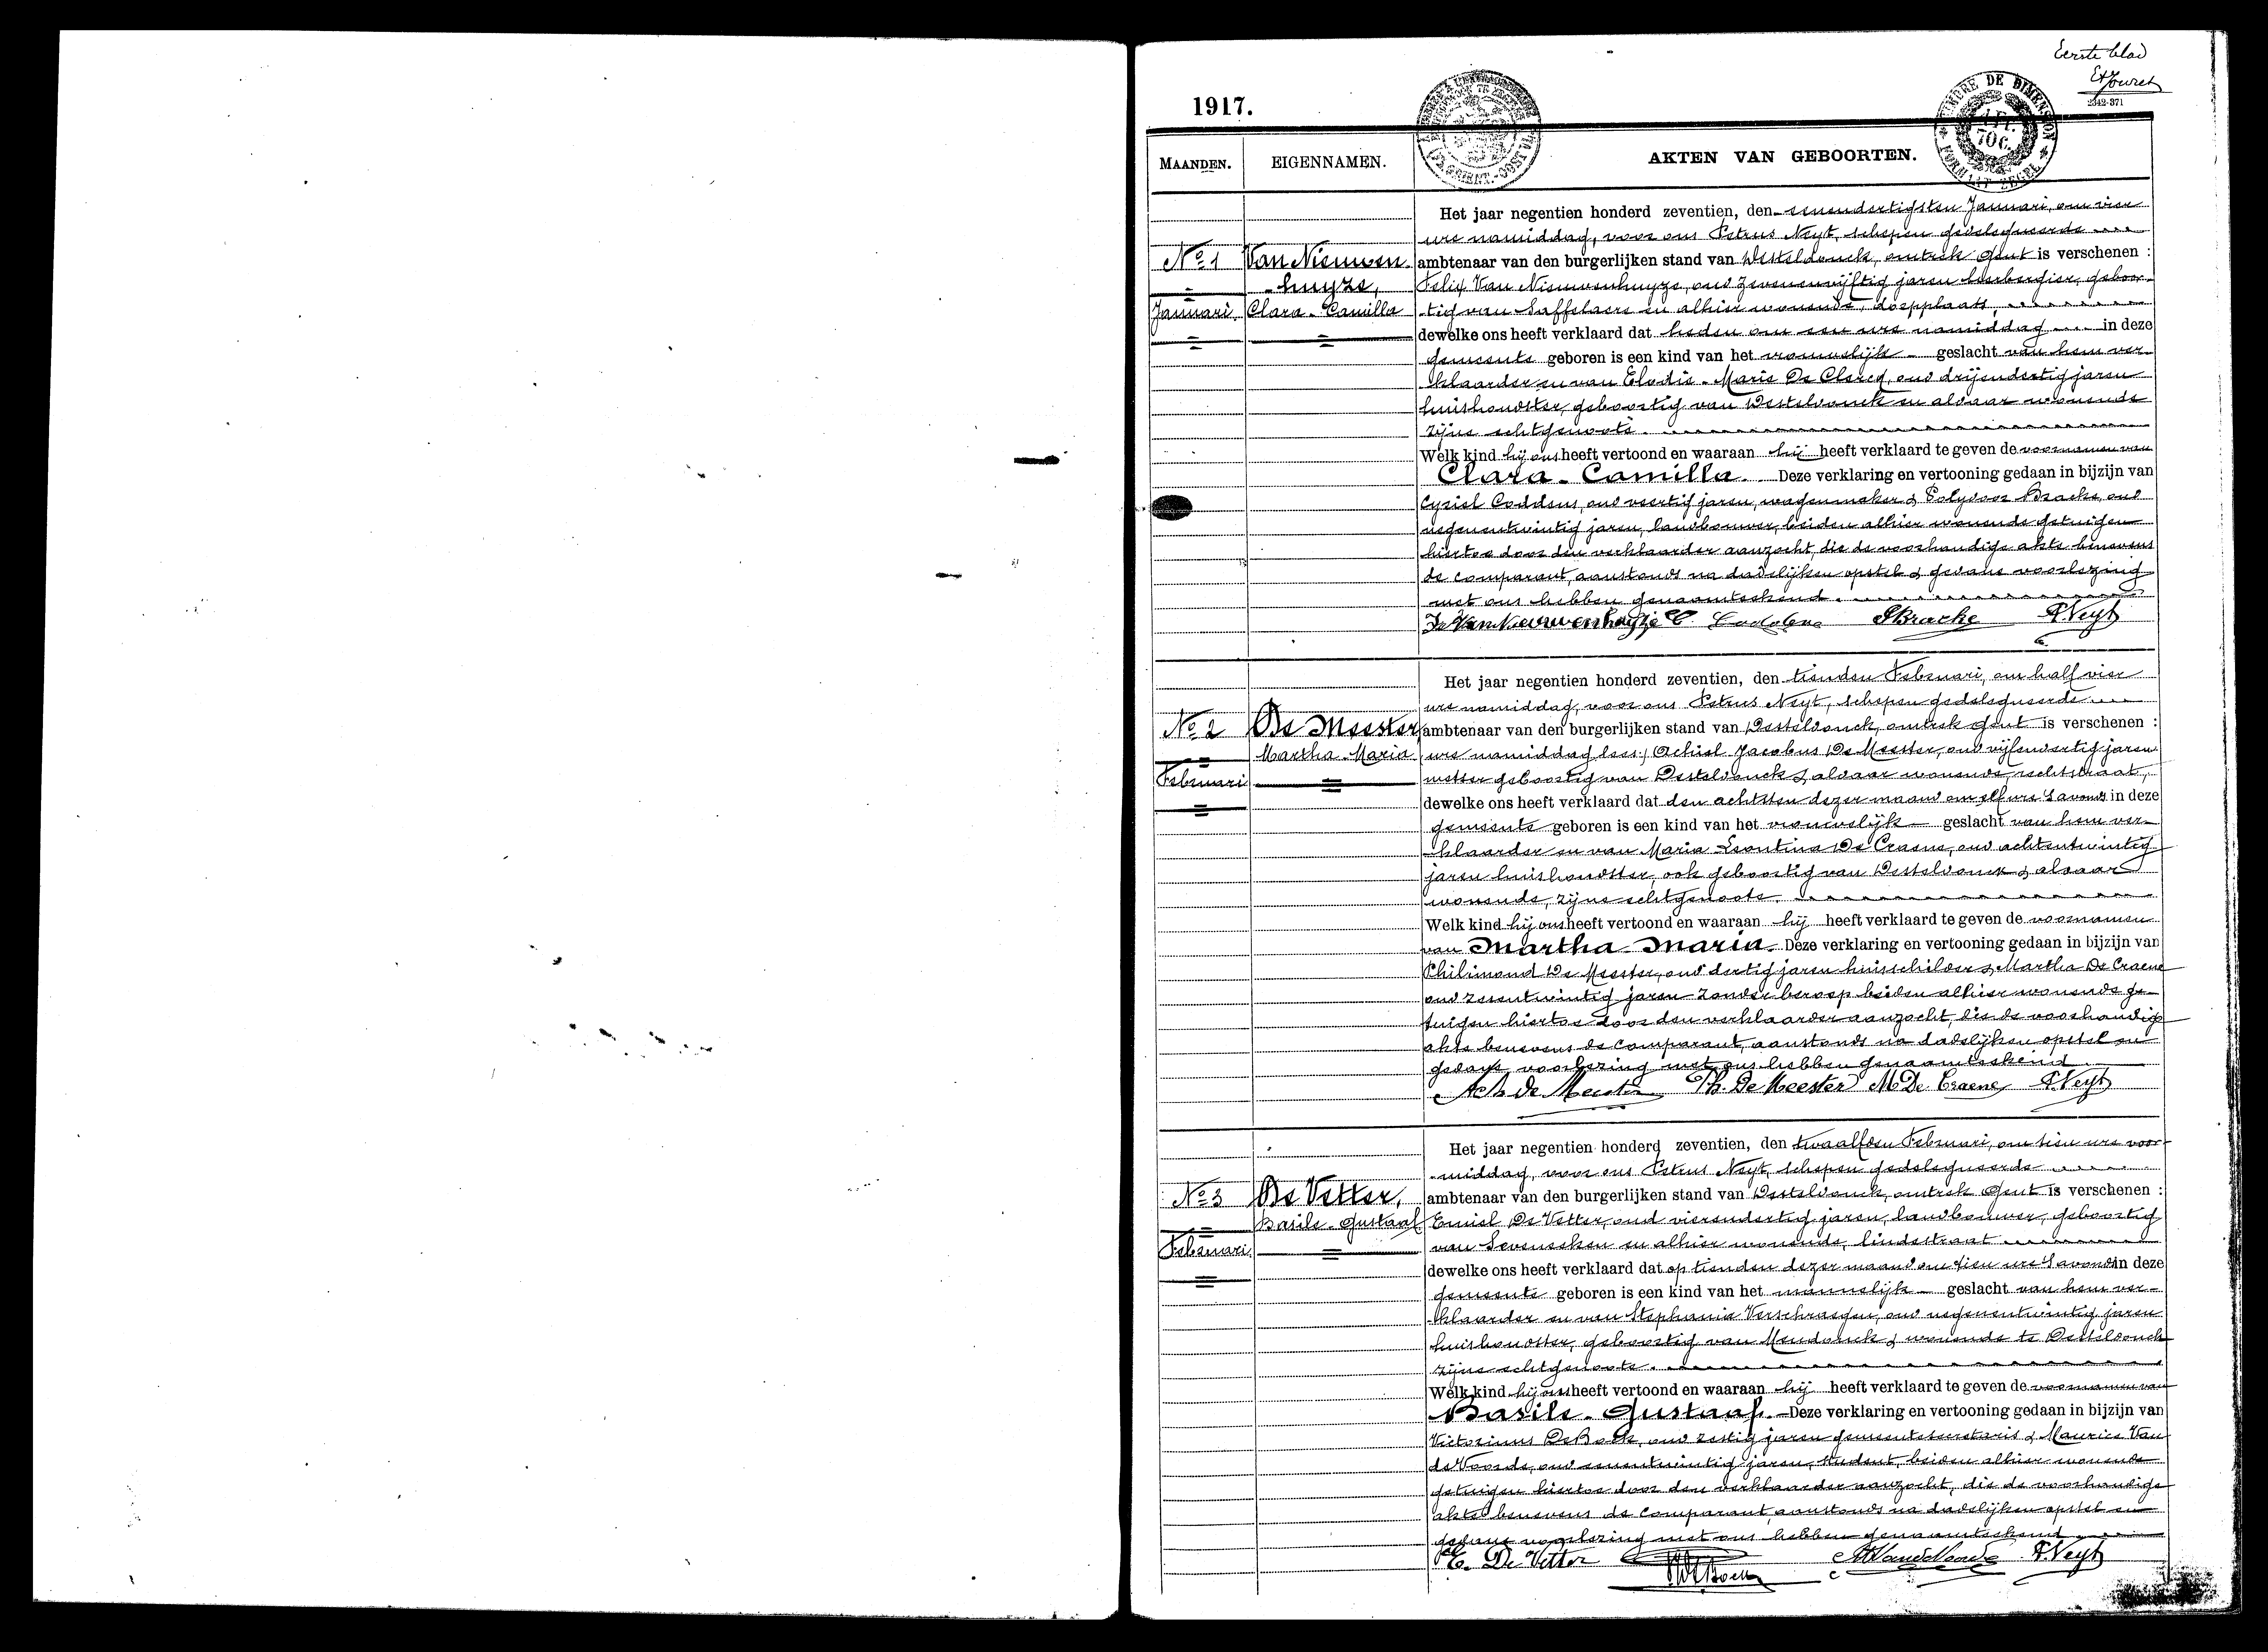 Eerste blad
2342-371
1917.
TIMBRE DE DIMENSION
70 C.
FORMAAT ZEGEL
MAANDEN.
EIGENNAMEN.
AKTEN VAN GEBOORTEN.
No 1
Januari
Van Nieuwen-
huyze,
Clara-Camilla
Het jaar negentien honderd zeventien, den eenendertigsten Januari, om vier
ure namiddag, voor ons Petrus Neyt, schepen gedelegueerde
ambtenaar van den burgerlijken stand van Desteldonck, omtrek Gent is verschenen :
Felix Van Nieuwenhuyze, oud zevenenvijftig jaren herbergier, geboor-
tig van Saffelaere en alhier wonende, dorpplaats,
dewelke ons heeft verklaard dat heden om een ure namiddag in deze
gemeente geboren is een kind van het vrouwelijk geslacht van hem ver-
klaarder en van Elodie-Marie De Clercq, oud drijendertig jaren
huishoudster, geboortig van Desteldonck en aldaar wonende
zijne echtgenoote.
Welk kind hij ons heeft vertoond en waaraan hij heeft verklaard te geven de voornamen van
Clara-Camilla. Deze verklaring en vertooning gedaan in bijzijn van
Cyriel Coddens, oud veertig jaren, wagenmaker & Polydoor Bracke, oud
negenentwintig jaren, landbouwer, beiden alhier wonende getuigen
hiertoe door den verklaarder aanzocht, die de voorhandige akte benevens
de comparant, aanstonds na dadelijken opstel & gedane voorlezing
met ons hebben genaamteekend.
Van Nieuwenhuyze C. Coddens Bracke P. Neyt
No 2
Februari
De Meester,
Martha-Maria
Het jaar negentien honderd zeventien, den tienden Februari, om half vier
ure namiddag, voor ons Petrus Neyt, schepen gedelegueerde
ambtenaar van den burgerlijken stand van Desteldonck, omtrek Gent is verschenen :
ure namiddag lees) Achiel Jacobus De Meester, oud vijfendertig jaren
metser geboortig van Desteldonck & aldaar wonende, rechtstraat,
dewelke ons heeft verklaard dat den achtsten dezer maand om elf ure 's avonds in deze
gemeente geboren is een kind van het vrouwelijk geslacht van hem ver-
klaarder en van Maria Leontina De Craene, oud achtentwintig
jaren huishoudster, ook geboortig van Desteldonck & aldaar
wonende, zijne echtgenoote.
Welk kind hij ons heeft vertoond en waaraan hij heeft verklaard te geven de voornamen
van Martha-Maria. Deze verklaring en vertooning gedaan in bijzijn van
Philimond De Meester, oud dertig jaren huisschilder & Martha De Craene
oud zesentwintig jaren zonder beroep beiden alhier wonende ge-
tuigen hiertoe door den verklaarder aanzocht, die de voorhandige
akte benevens de comparant, aanstonds na dadelijken opstel en
gedane voorlezing met ons hebben genaamteekend
Ach de Meester Ph. De Meester M De Craene P. Neyt
No 3
Februari
De Vetter,
Basile-Gustaaf
Het jaar negentien honderd zeventien, den twaalfden Februari, om tien ure voor-
middag, voor ons Petrus Neyt, schepen gedelegueerde
ambtenaar van den burgerlijken stand van Desteldonck, omtrek Gent is verschenen :
Emiel De Vetter, oud vierendertig jaren, landbouwer, geboortig
van Seveneeken en alhier wonende, lindestraat
dewelke ons heeft verklaard dat op tienden dezer maand om tien ure 's avonds in deze
gemeente geboren is een kind van het mannelijk geslacht van hem ver-
klaarder en van Stephania Verschraegen, oud negenentwintig jaren
huishoudster, geboortig van Mendonck & wonende te Desteldonck
zijne echtgenoote.
Welk kind hij ons heeft vertoond en waaraan hij heeft verklaard te geven de voornamen van
Basile-Gustaaf. Deze verklaring en vertooning gedaan in bijzijn van
Victorinus De Bock, oud zestig jaren gemeentesecretaris & Maurice Van
de Voorde, oud eenentwintig jaren, student, beiden alhier wonende
getuigen hiertoe door den verklaarder aanzocht, die de voorhandige
akte benevens de comparant, aanstonds na dadelijken opstel en
gedane voorlezing met ons hebben genaamteekend
E. De Vetter M Van de Voorde P. Neyt